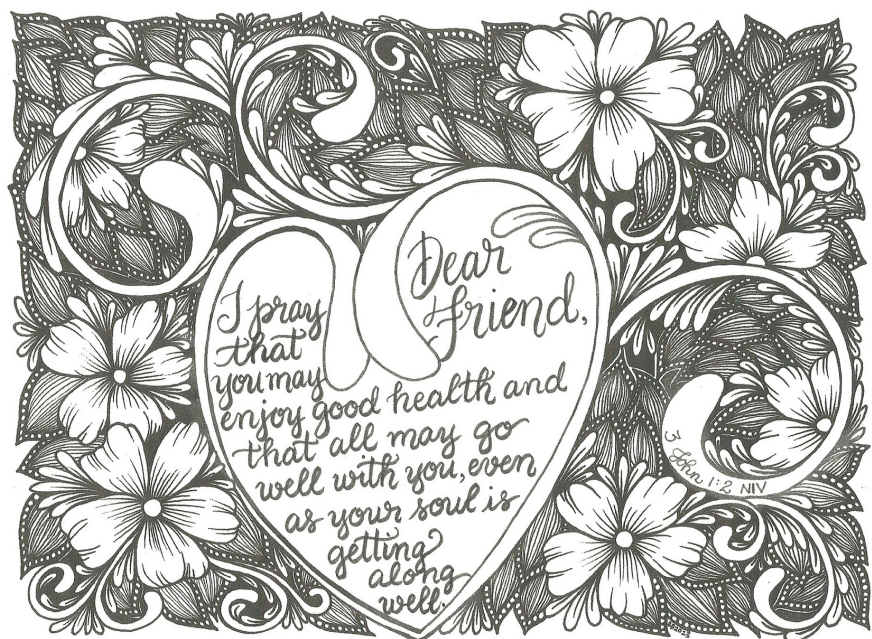 Dear
friend,
I pray
that
you may
enjoy good health and
that all may go
well with you, even
as your soul is
getting
along
well.
3 John 1:2 NIV